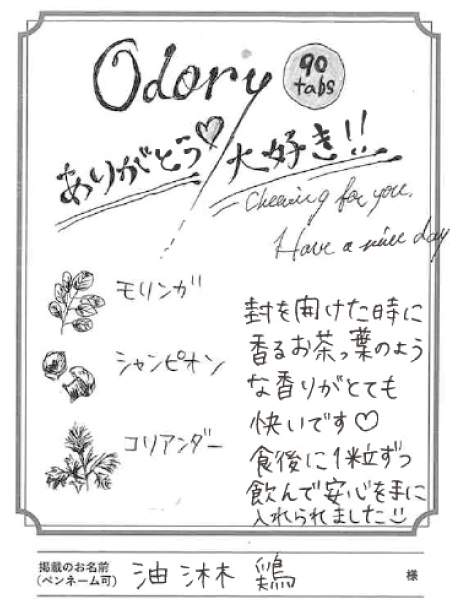 Odory
90
tabs
ありがとう♡
大好き!!
Cheering for you.
Have a nice day
モリンガ
シャンピオン
コリアンダー
封を開けた時に
香るお茶っ葉のよう
な香りがとても
快いです♡
食後に1粒ずつ
飲んで安心を手に
入れられました
掲載のお名前
(ペンネーム可)
油淋鶏
様